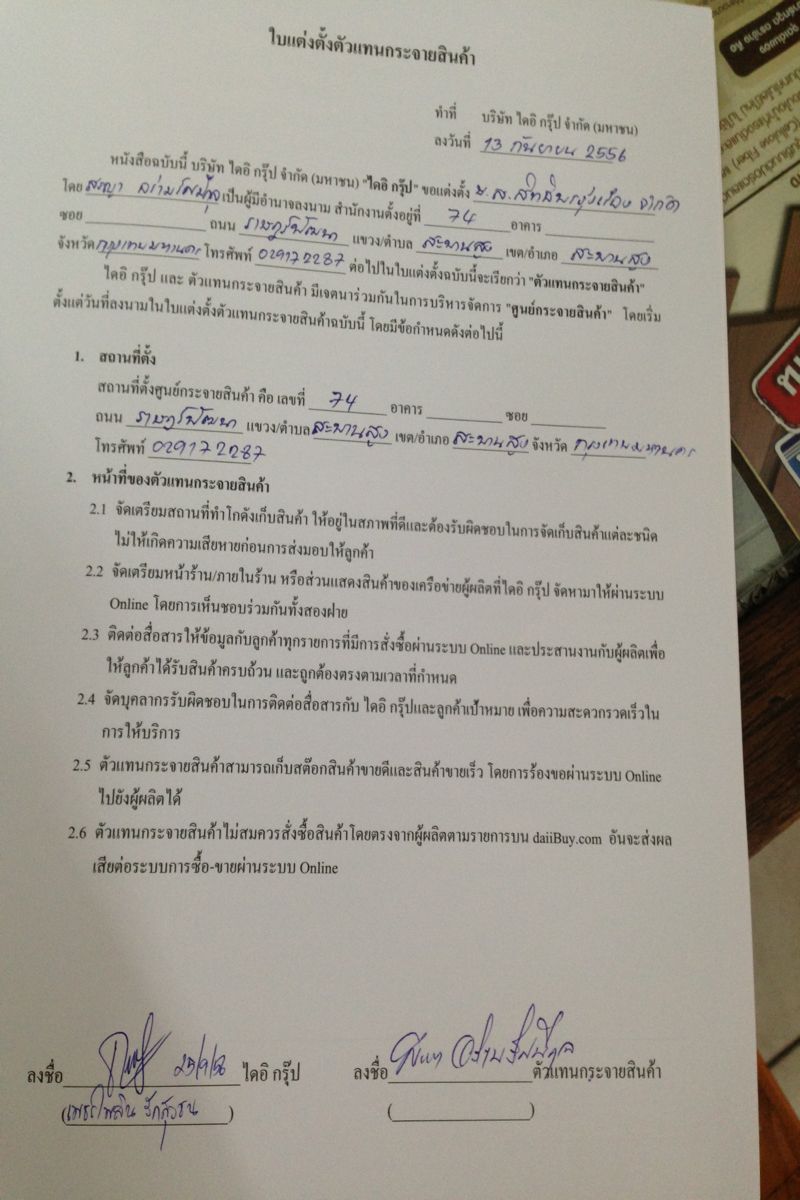 ใบแต่งตั้งตัวแทนกระจายสินค้า
ทำที่ บริษัท ไดอิ กรุ๊ป จำกัด (มหาชน)
ลงวันที่ 13 กันยายน 2556
หนังสือฉบับนี้ บริษัท ไดอิ กรุ๊ป จำกัด (มหาชน) "ไดอิ กรุ๊ป" ขอแต่งตั้ง จำกัด
โดย เป็นผู้มีอำนาจลงนาม สำนักงานตั้งอยู่ที่ 74 อาคาร
ซอย ถนน ราษฎร์พัฒนา แขวง/ตำบล สะพานสูง เขต/อำเภอ สะพานสูง
จังหวัด กรุงเทพมหานคร โทรศัพท์ 029172287 ต่อไปในใบแต่งตั้งฉบับนี้จะเรียกว่า "ตัวแทนกระจายสินค้า"
ไดอิ กรุ๊ป และ ตัวแทนกระจายสินค้า มีเจตนาร่วมกันในการบริหารจัดการ "ศูนย์กระจายสินค้า" โดยเริ่ม
ตั้งแต่วันที่ลงนามในใบแต่งตั้งตัวแทนกระจายสินค้าฉบับนี้ โดยมีข้อกำหนดดังต่อไปนี้
1. สถานที่ตั้ง
สถานที่ตั้งศูนย์กระจายสินค้า คือ เลขที่ 74 อาคาร ซอย
ถนน ราษฎร์พัฒนา แขวง/ตำบล สะพานสูง เขต/อำเภอ สะพานสูง จังหวัด กรุงเทพมหานคร
โทรศัพท์ 029172287
2. หน้าที่ของตัวแทนกระจายสินค้า
2.1 จัดเตรียมสถานที่ทำโกดังเก็บสินค้า ให้อยู่ในสภาพที่ดีและต้องรับผิดชอบในการจัดเก็บสินค้าแต่ละชนิด
ไม่ให้เกิดความเสียหายก่อนการส่งมอบให้ลูกค้า
2.2 จัดเตรียมหน้าร้าน/ภายในร้าน หรือส่วนแสดงสินค้าของเครือข่ายผู้ผลิตที่ไดอิ กรุ๊ป จัดหามาให้ผ่านระบบ
Online โดยการเห็นชอบร่วมกันทั้งสองฝ่าย
2.3 ติดต่อสื่อสารให้ข้อมูลกับลูกค้าทุกรายการที่มีการสั่งซื้อผ่านระบบ Online และประสานงานกับผู้ผลิตเพื่อ
ให้ลูกค้าได้รับสินค้าครบถ้วน และถูกต้องตรงตามเวลาที่กำหนด
2.4 จัดบุคลากรรับผิดชอบในการติดต่อสื่อสารกับ ไดอิ กรุ๊ปและลูกค้าเป้าหมาย เพื่อความสะดวกรวดเร็วใน
การให้บริการ
2.5 ตัวแทนกระจายสินค้าสามารถเก็บสต๊อกสินค้าขายดีและสินค้าขายเร็ว โดยการร้องขอผ่านระบบ Online
ไปยังผู้ผลิตได้
2.6 ตัวแทนกระจายสินค้าไม่สมควรสั่งซื้อสินค้าโดยตรงจากผู้ผลิตตามรายการบน daiiBuy.com อันจะส่งผล
เสียต่อระบบการซื้อ-ขายผ่านระบบ Online
ลงชื่อ 25/9/56 ไดอิ กรุ๊ป ลงชื่อ ตัวแทนกระจายสินค้า